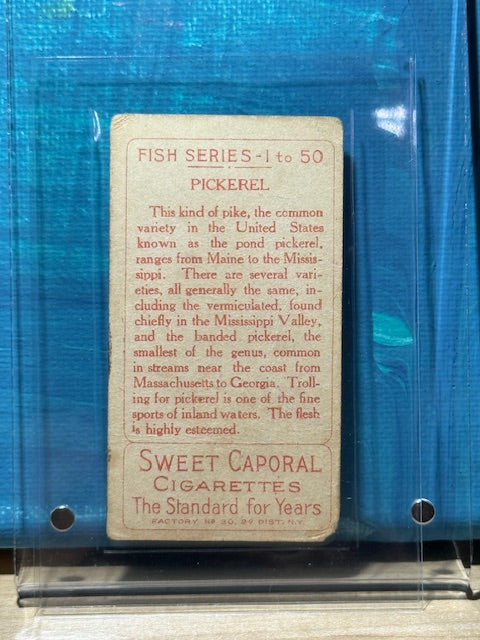 FISH SERIES-1 to 50
PICKEREL
This kind of pike, the common
variety in the United States
known as the pond pickerel,
ranges from Maine to the Missis-
sippi. There are several vari-
eties, all generally the same, in-
cluding the vermiculated, found
chiefly in the Mississippi Valley,
and the banded pickerel, the
smallest of the genus, common
in streams near the coast from
Massachusetts to Georgia. Troll-
ing for pickerel is one of the fine
sports of inland waters. The flesh
is highly esteemed.
SWEET CAPORAL
CIGARETTES
The Standard for Years
FACTORY No 30, 2D DIST. N.Y.